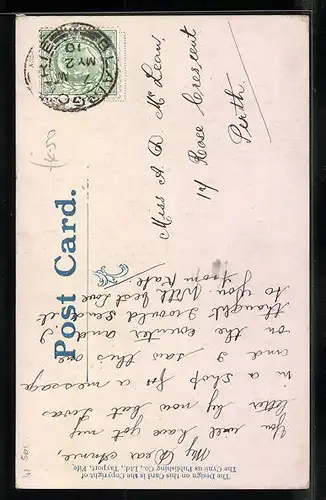 Post Card.
The Design on this Card is the Copyright of
The Cynicus Publishing Co., Ltd., Tayport, Fife.
BLAIRGOWRIE
MY 2
10
Miss A. D. McLean,
17 Rose Crescent
Perth.
My Dear Annie,
You will have got my
letter by now but I was
in a shop for a message
and I saw this one
on the counter and I
thought I would send it
to you. With best love
from Kate.